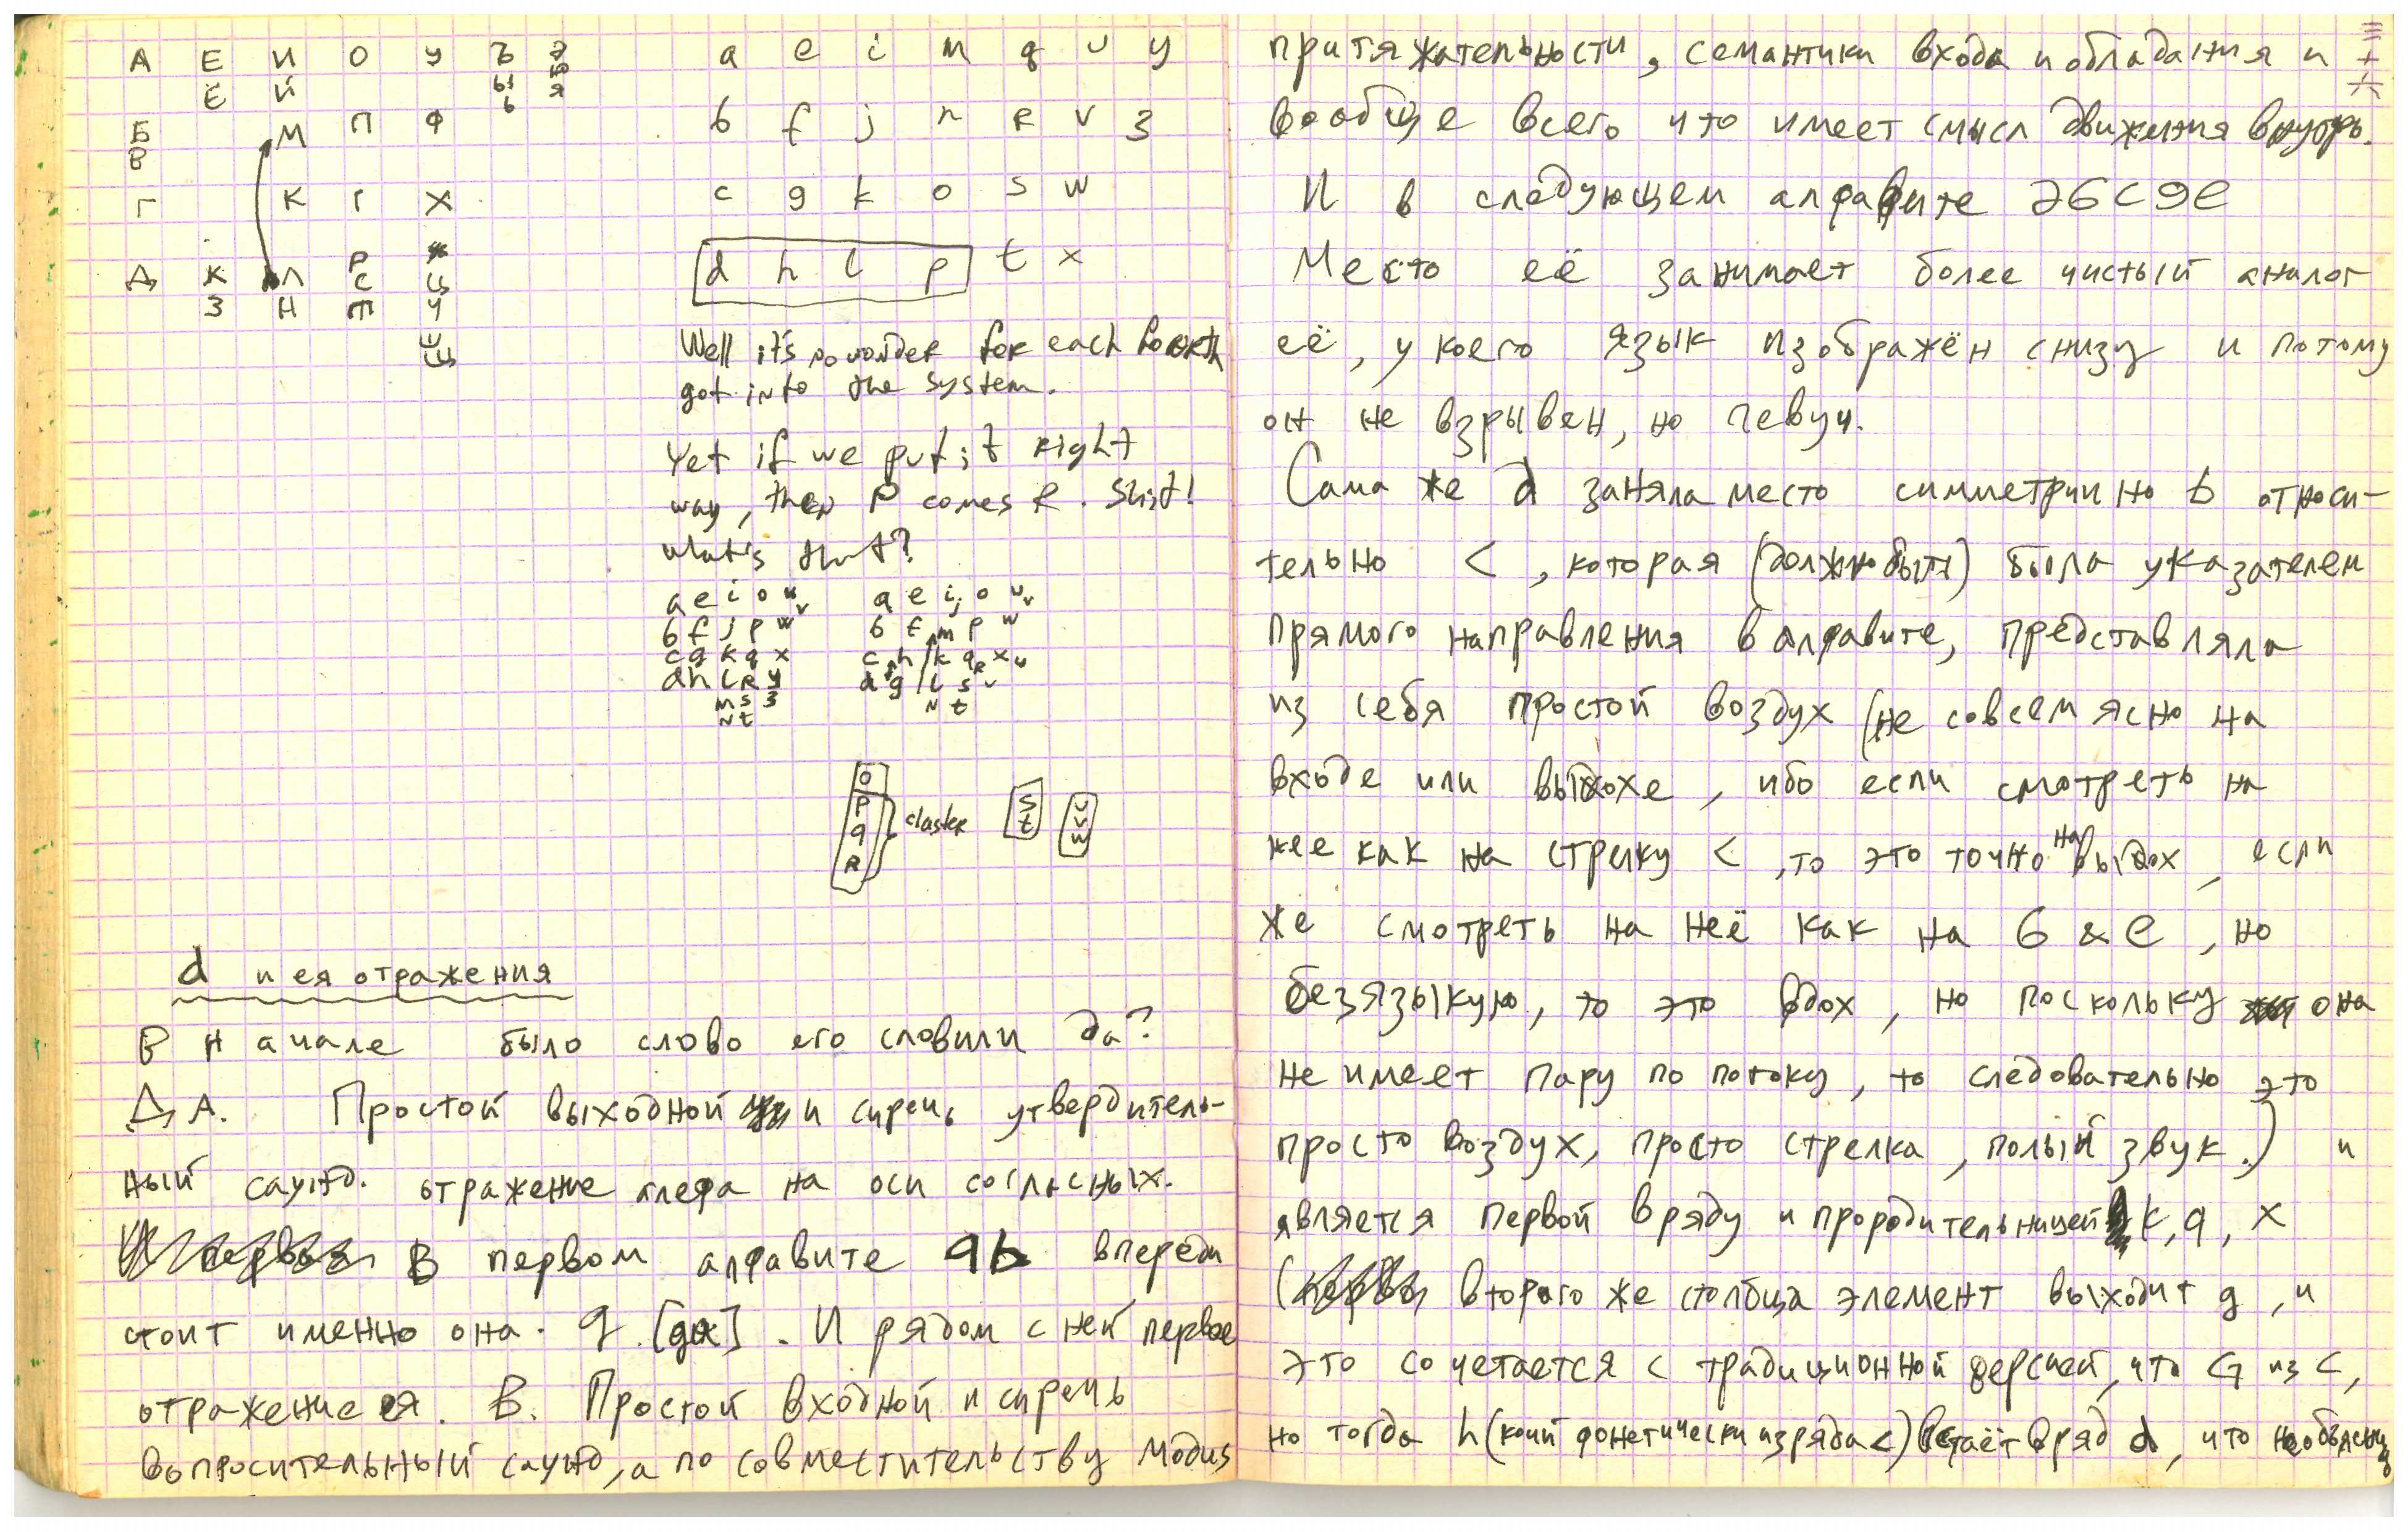 А Е И О У Ъ Э
Ё Й Ы Ю
Ь Я
Б М П Ф
В
Г К Г Х
Р Ж
Д К Л С Ц
З Н Т Ч
Ш
Щ
a e i m q u y
b f j n r v z
c g k o s w
d h l p t x
Well it's no wonder for each fourth
got into the system.
Yet if we put it right
way, then P comes R. Shit!
what's that?
a e i o u v
b f j p w
c g k q x
d h l R y
m s z
N t
a e i j o u v
b f m p w
c h k q R x
d g l s
N t
O
P
q
R
claster
S
t
U
V
W
d и ея отражения
В начале было слово его словили да?
ДА. Простой выходной и сиречь утвердитель-
ный саунд. отражение алефа на оси согласных.
В первом алфавите qb впереди
стоит именно она. q [да]. И рядом с ней первое
отражение ея. B. Простой входной и сиречь
вопросительный саунд, а по совместительству модus
притяжательности, семантики входа и обладания и
вообще всего что имеет смысл движения внутрь.
И в следующем алфавите
Место её занимает более чистый аналог
её, у коего язык изображён снизу и потому
он не взрывен, но певуч.
Сама же d заняла место симметрично b относи-
тельно <, которая (должно быть) была указателем
прямого направления в алфавите, представляла
из себя простой воздух (не совсем ясно на
входе или выдохе, ибо если смотреть на
нее как на стрелку <, то это точно на выдох, если
же смотреть на неё как на G & e, но
безязыкую, то это вдох, но поскольку она
не имеет пару по потоку, то следовательно это
просто воздух, просто стрелка, полый звук.) и
является первой в ряду и прородительницей k, q, x
(второго же столбца элемент выходит g, и
это сочетается с традиционной версией, что G из C,
но тогда h (коий фонетически из ряда <) встаёт в ряд d, что необъясним